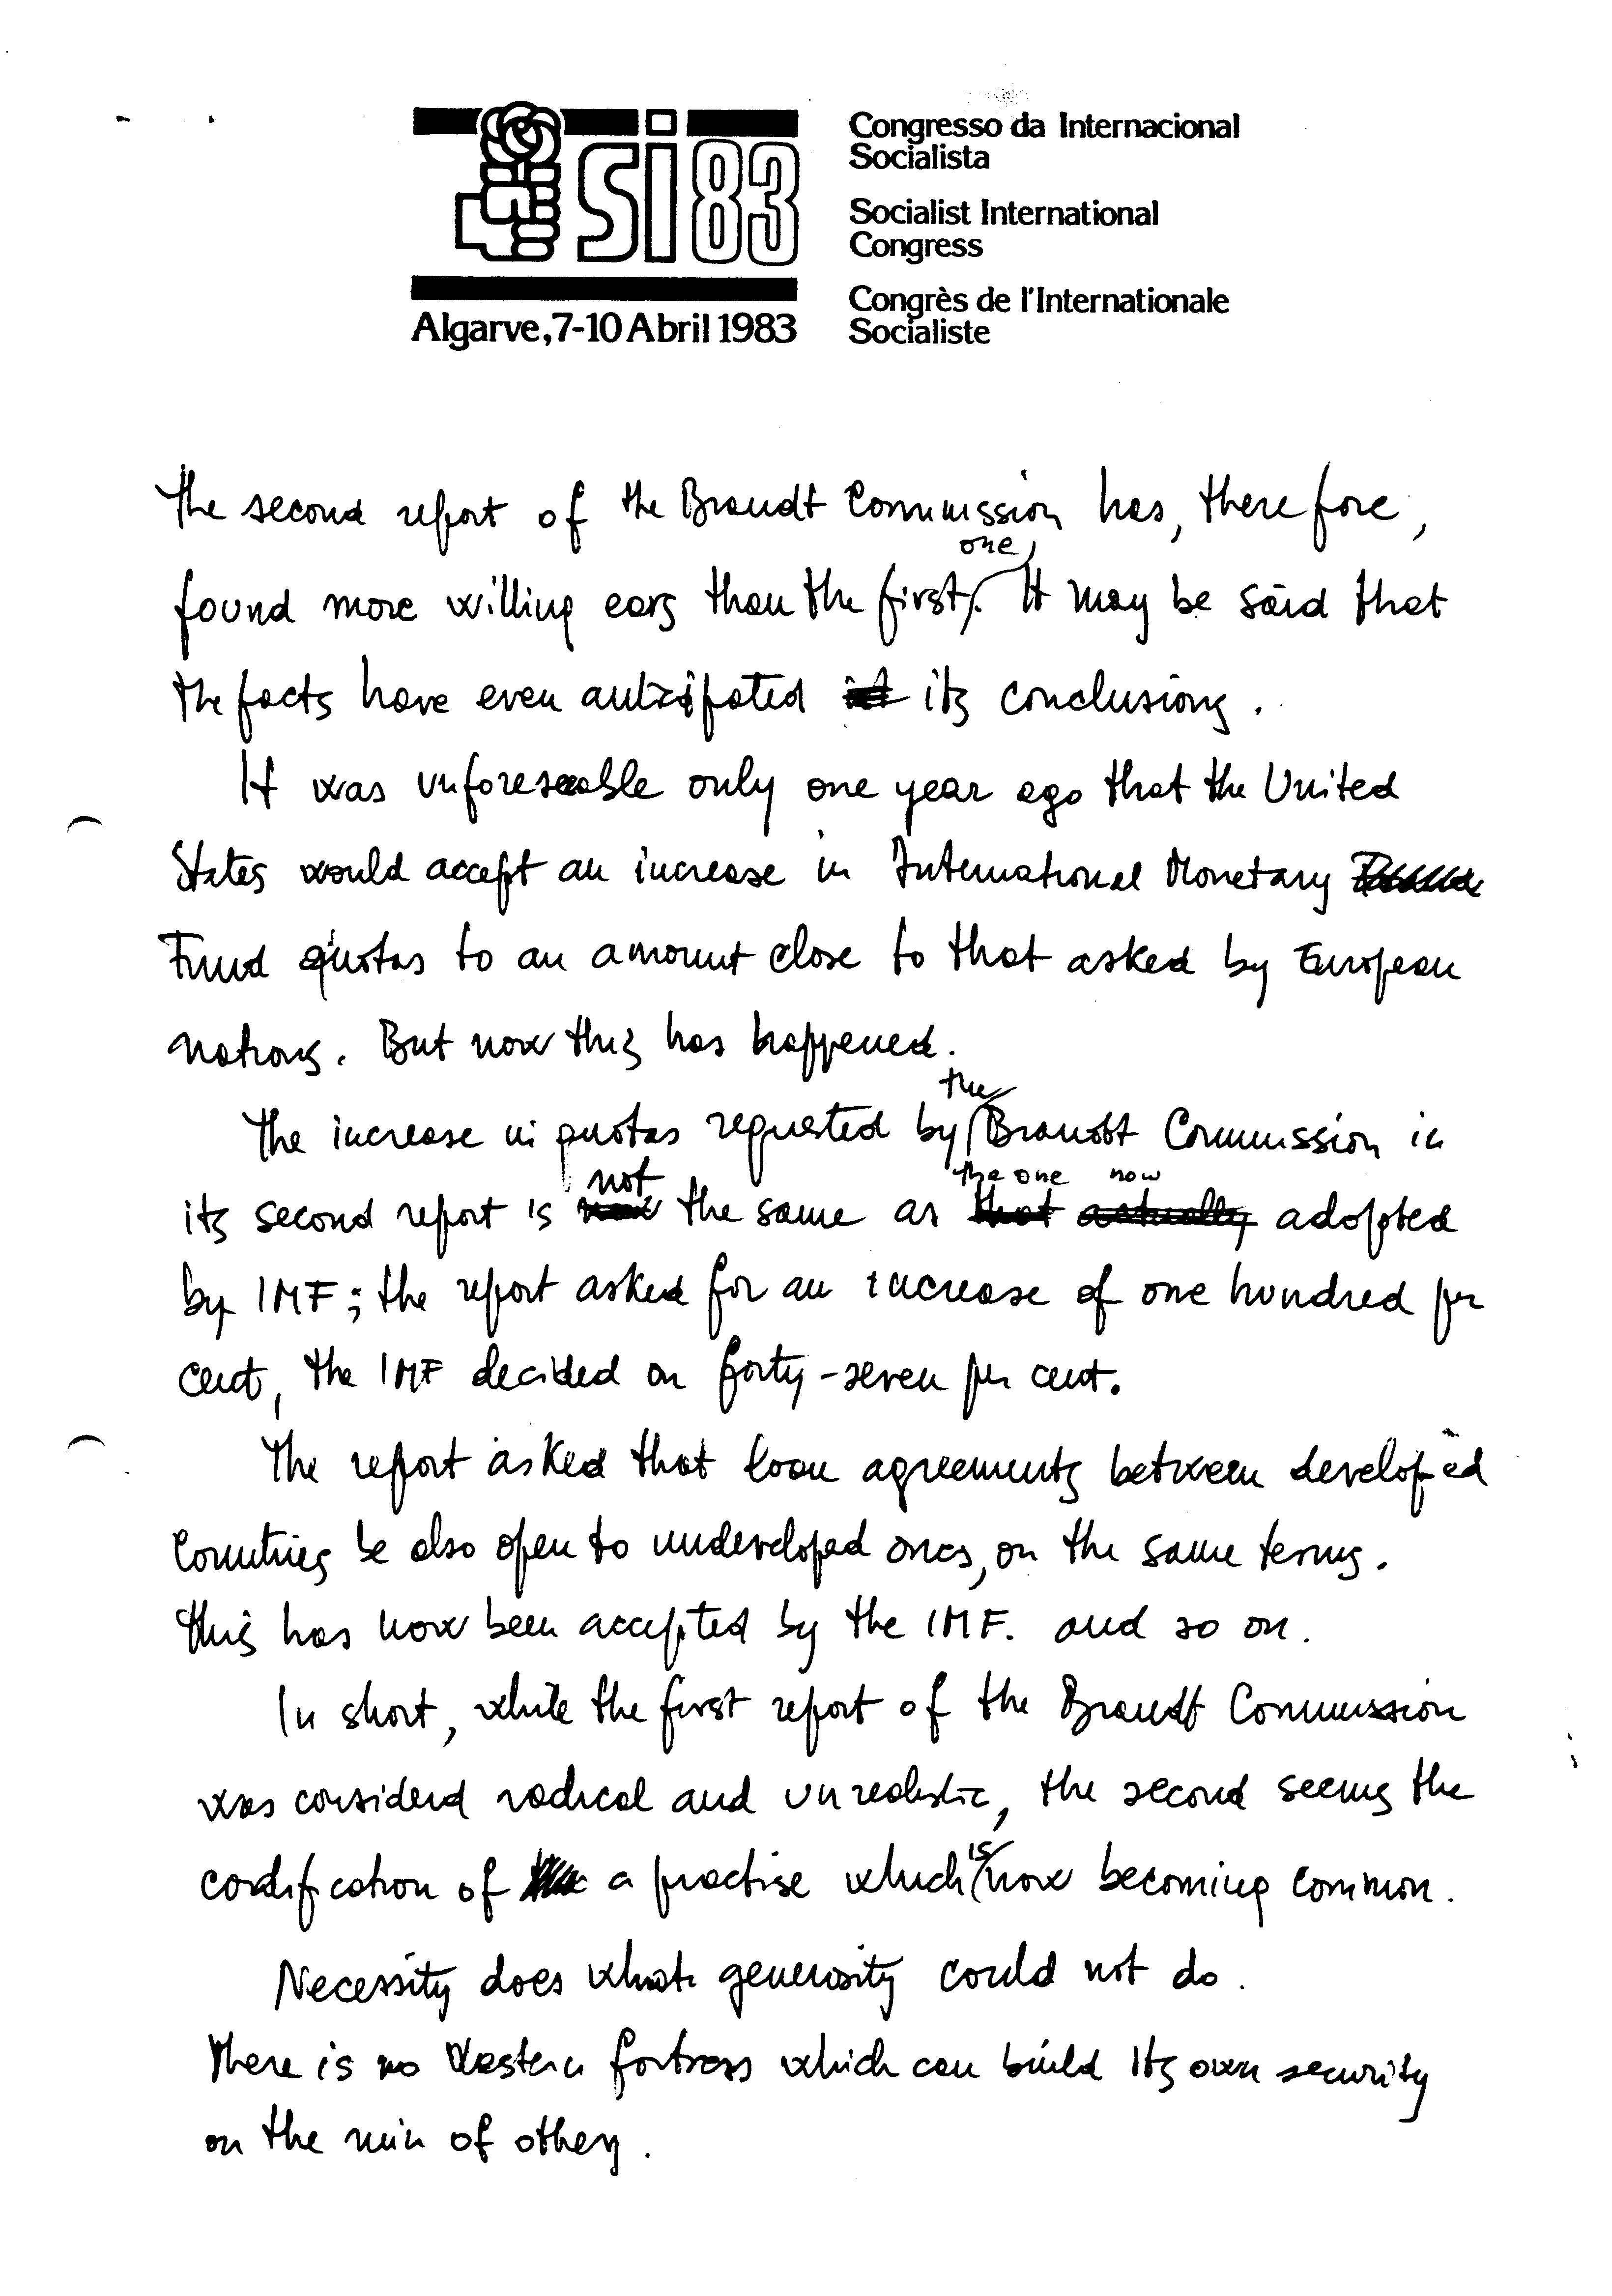 si 83
Algarve, 7-10 Abril 1983
Congresso da Internacional
Socialista
Socialist International
Congress
Congrès de l'Internationale
Socialiste
The second report of the Brandt Commission has, therefore,
found more willing ears than the first one. It may be said that
the facts have even anticipated its conclusions.
It was unforeseeable only one year ago that the United
States would accept an increase in International Monetary
Fund quotas to an amount close to that asked by European
nations. But now this has happened.
The increase in quotas requested by the Brandt Commission in
its second report is not the same as the one now adopted
by IMF; the report asked for an increase of one hundred per
cent, the IMF decided on forty-seven per cent.
The report asked that loan agreements between developed
Countries be also open to undeveloped ones, on the same terms.
This has now been accepted by the IMF. and so on.
In short, while the first report of the Brandt Commission
was considerd radical and unrealistic, the second seems the
codification of a practise which is now becoming common.
Necessity does what generosity could not do.
There is no Western fortress which can build its own security
on the ruin of others.